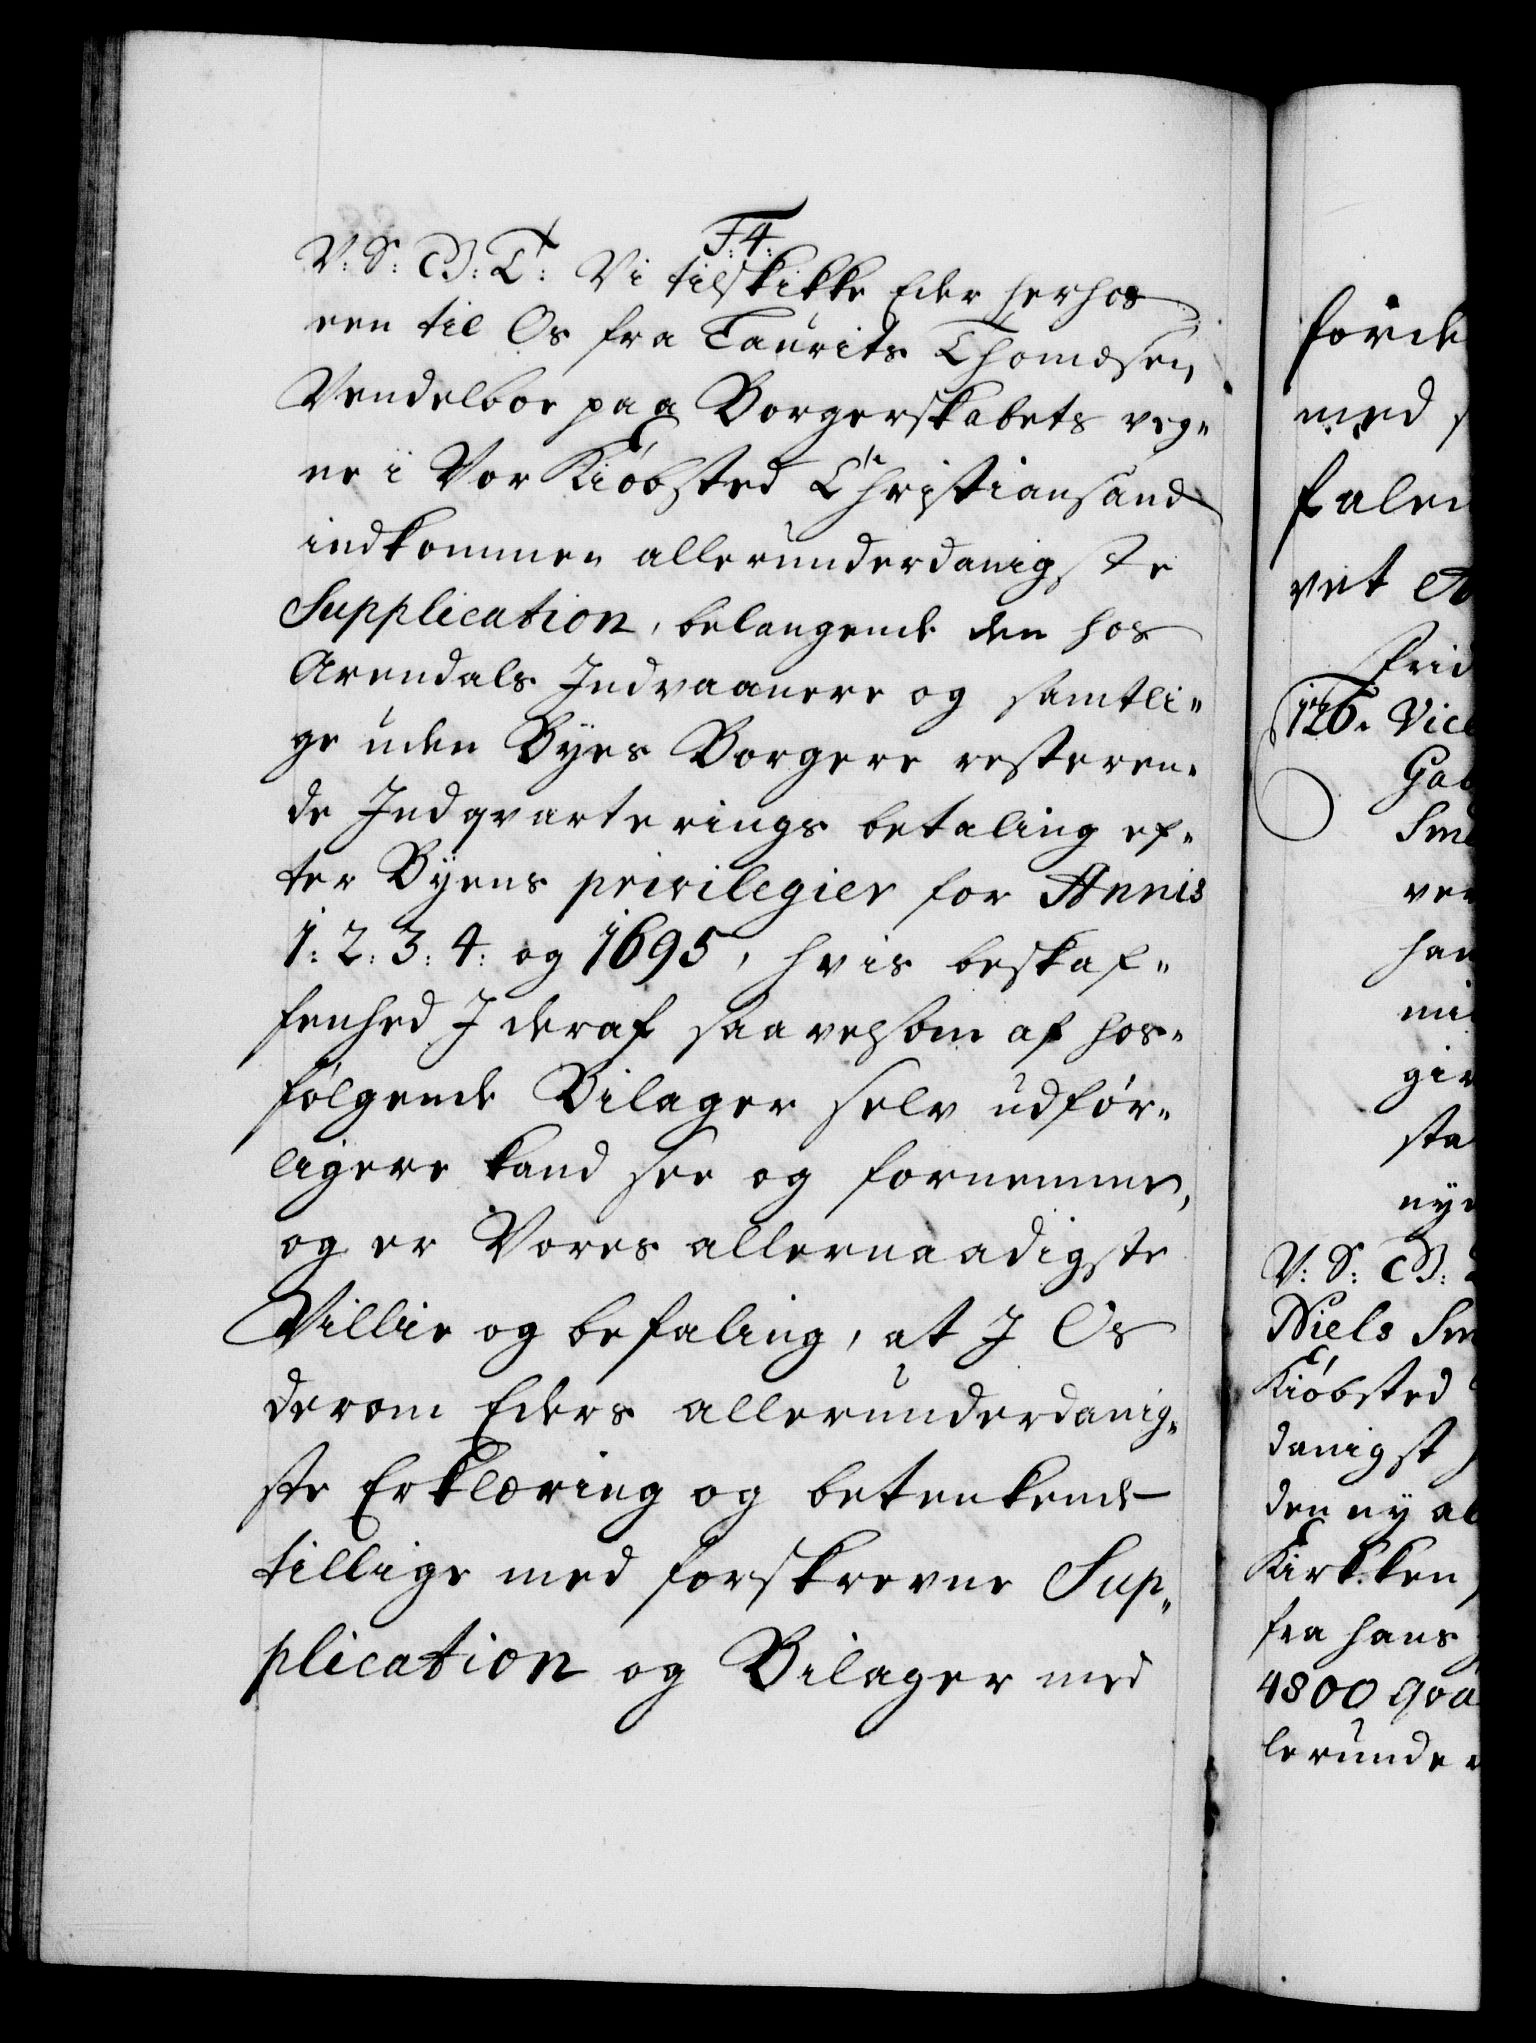 F: 4.
V: S: G: B: T: Vi tilskikke Eder herhos
een til Os fra Laurits Thomæsen
Vendelboe paa Borgerskabets veg„
ne i Vor Kiöbsted Christiansand
indkommen allerunderdanigste
Supplication, belangende den hos
Arendals Indvaanere og samtli„
ge uden Byes Borgere resteren„
de Indqvarterings betaling ef„
ter Byens privilegier for Annis
1: 2: 3: 4: og 1695, hvis beskaf„
fenhed I deraf saavelsom af hos„
fölgende Bilager selv udför„
ligere kand see og fornemme,
og er Vores allernaadigste
Villie og befaling, at I Os
derom Eders allerunderdanig„
ste Erklæring og betenkende
tillige med forskrevne Sup„
plication og Bilager med
förde
med
falen
vet
Frid
126. Vice
Gab
Sm
ver
han
mi
giv
sta
nye
V: S: G: B:
Niels Sm
Kiöbsted
danigst
den ny al
Kirkken
fra hans
4800 qva
lerunder